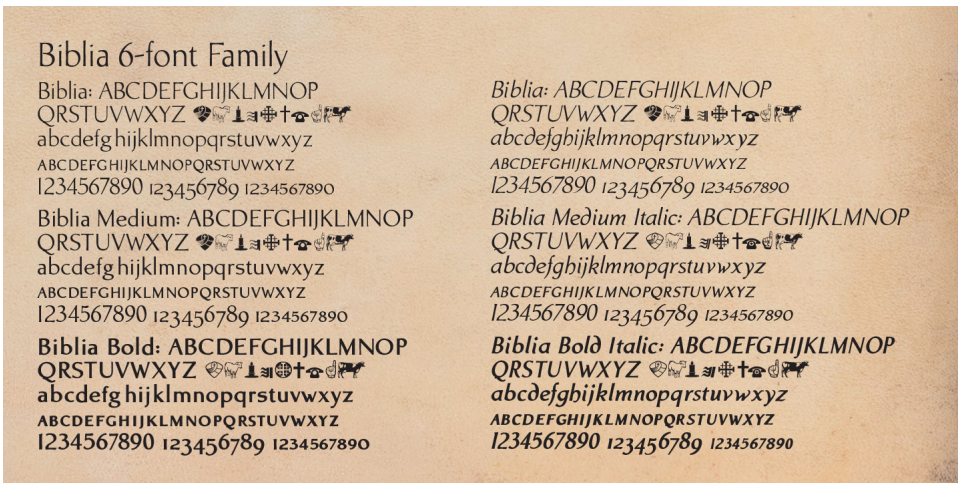 Biblia 6-font Family
Biblia: ABCDEFGHIJKLMNOP
QRSTUVWXYZ
abcdefghijklmnopqrstuvwxyz
ABCDEFGHIJKLMNOPQRSTUVWXYZ
1234567890 123456789 1234567890
Biblia Medium: ABCDEFGHIJKLMNOP
QRSTUVWXYZ
abcdefghijklmnopqrstuvwxyz
ABCDEFGHIJKLMNOPQRSTUVWXYZ
1234567890 123456789 1234567890
Biblia Bold: ABCDEFGHIJKLMNOP
QRSTUVWXYZ
abcdefghijklmnopqrstuvwxyz
ABCDEFGHIJKLMNOPQRSTUVWXYZ
1234567890 123456789 1234567890
Biblia: ABCDEFGHIJKLMNOP
QRSTUVWXYZ
abcdefghijklmnopqrstuvwxyz
ABCDEFGHIJKLMNOPQRSTUVWXYZ
1234567890 123456789 1234567890
Biblia Medium Italic: ABCDEFGHIJKLMNOP
QRSTUVWXYZ
abcdefghijklmnopqrstuvwxyz
ABCDEFGHIJKLMNOPQRSTUVWXYZ
1234567890 123456789 1234567890
Biblia Bold Italic: ABCDEFGHIJKLMNOP
QRSTUVWXYZ
abcdefghijklmnopqrstuvwxyz
ABCDEFGHIJKLMNOPQRSTUVWXYZ
1234567890 123456789 1234567890